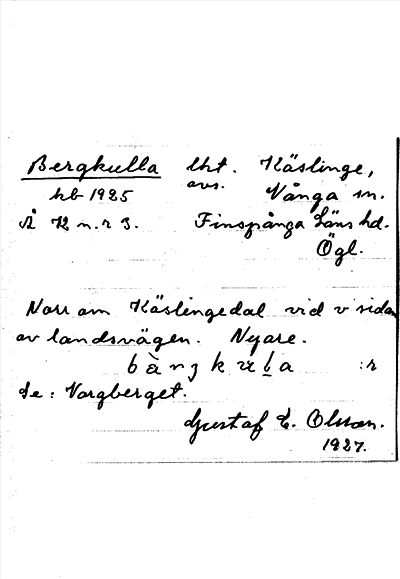 Bergkulla lht. Käslinge,
kb 1925 avs. Vånga sn.
Å K2 n.r 3. Finspånga Läns hd.
Ögl.
Norr om Käslingedal vid v sidan
av landsvägen. Nyare.
:r
Se: Vargberget.
Gustaf E. Olsson.
1927.